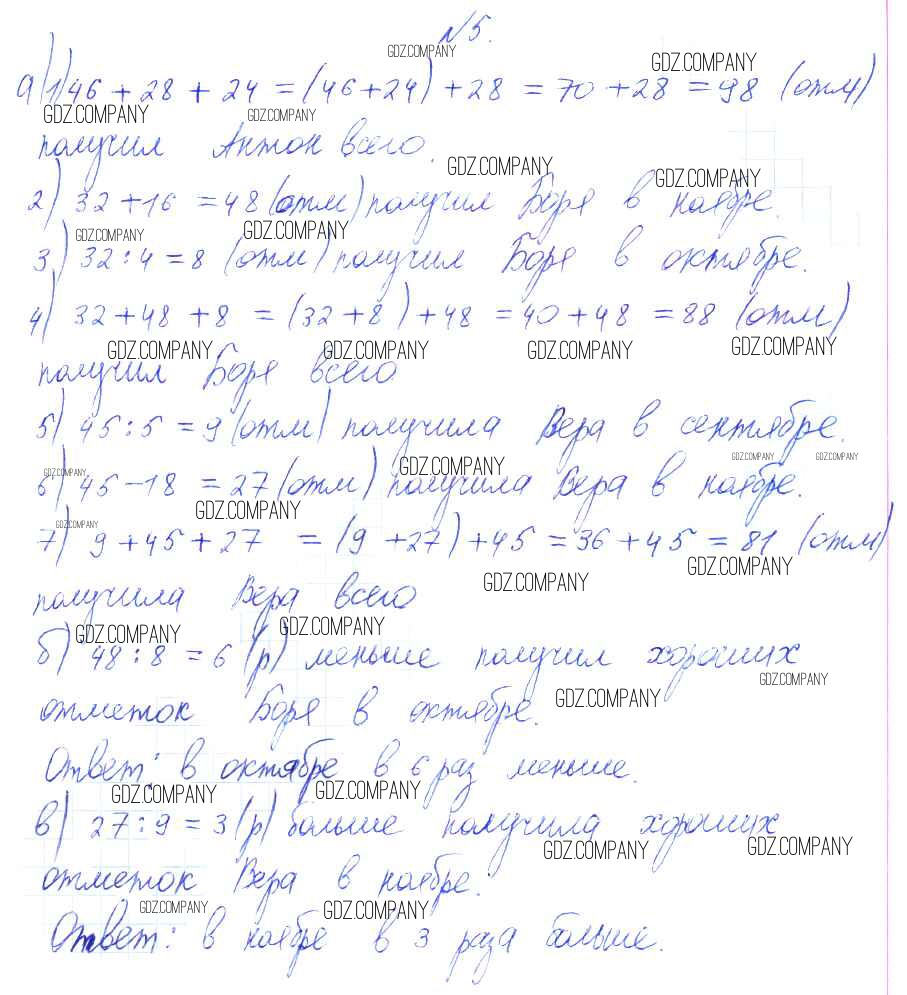 №5.
а) 1) 46 + 28 + 24 = (46+24) + 28 = 70 + 28 = 98 (отм)
получил Антон всего.
2) 32 + 16 = 48 (отм) получил Боря в ноябре.
3) 32 : 4 = 8 (отм) получил Боря в октябре.
4) 32 + 48 + 8 = (32 + 8) + 48 = 40 + 48 = 88 (отм)
получил Боря всего
5) 45 : 5 = 9 (отм) получила Вера в сентябре.
6) 45 - 18 = 27 (отм) получила Вера в ноябре.
7) 9 + 45 + 27 = (9 + 27) + 45 = 36 + 45 = 81 (отм)
получила Вера всего
б) 48 : 8 = 6 (р) меньше получил хороших
отметок Боря в октябре.
Ответ: в октябре в 6 раз меньше.
в) 27 : 9 = 3 (р) больше получила хороших
отметок Вера в ноябре.
Ответ: в ноябре в 3 раза больше.
GDZ.COMPANY